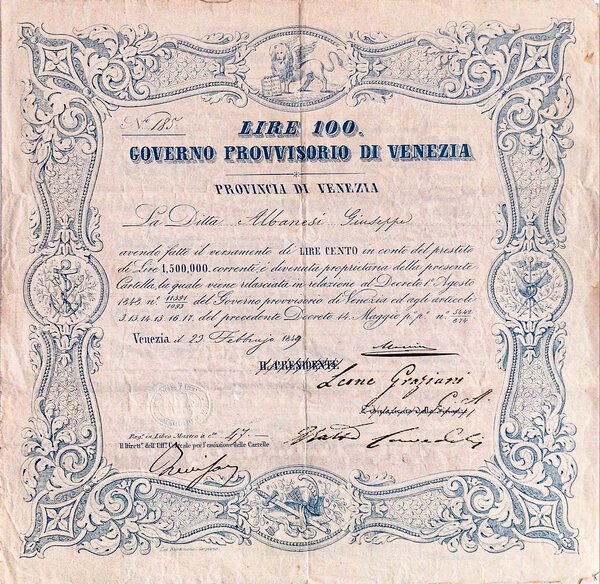 N.º 185
LIRE 100.
GOVERNO PROVVISORIO DI VENEZIA
PROVINCIA DI VENEZIA
La Ditta Albanesi Giuseppe
avendo fatto il versamento di LIRE CENTO in conto del prestito
di Lire 1,500,000. correnti, è divenuta proprietaria della presente
Cartella, la quale viene rilasciata in relazione al Decreto 1.º Agosto
1848 n.º 11391/1093 del Governo provvisorio di Venezia ed agli articoli
3. 13. 14. 15. 16. 17. del precedente Decreto 14. Maggio p.º p.º n.º
Venezia il 23 Febbrajo 1849
IL PRESIDENTE
Leone Graziani
Reg.º in Libro Mastro a C.º 47
Il Dirett.e dell'Uff.º Centrale per l'emissione delle Cartelle